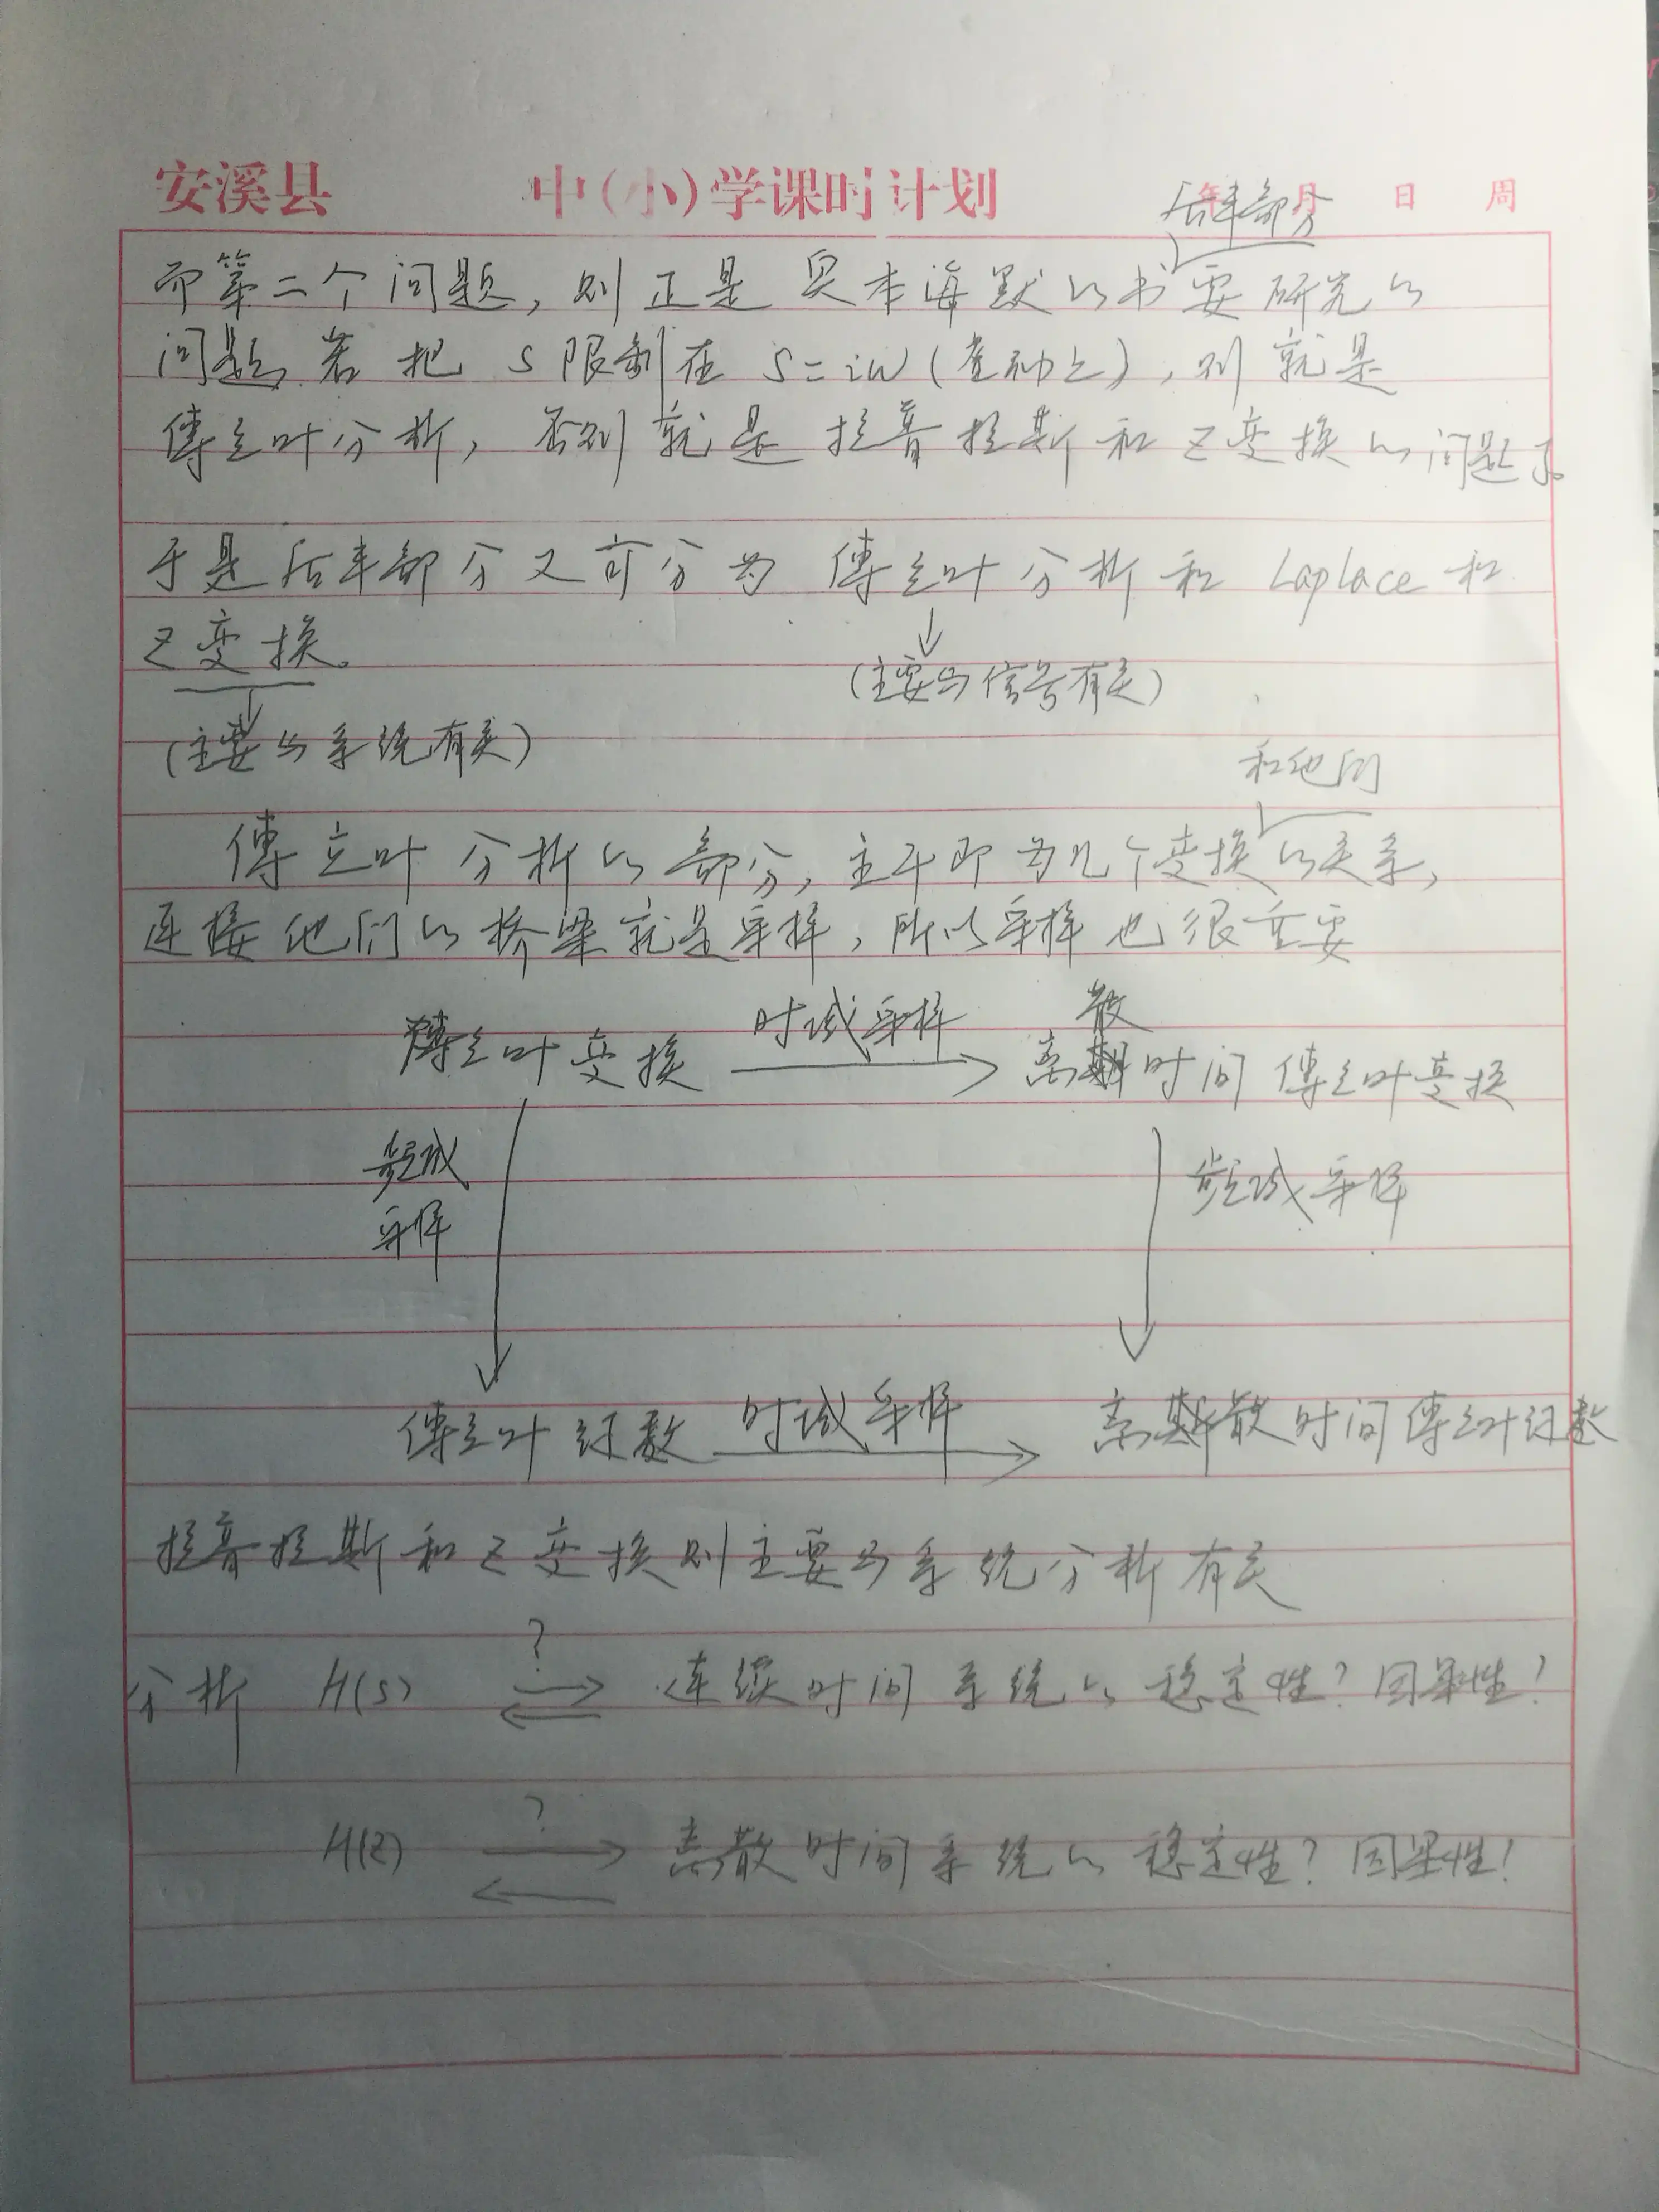 安溪县 中(小)学课时计划 年 月 日 周
后半部分
而第二个问题,则正是奥本海默的书要研究的
问题,若把S限制在S=iω(虚轴上),则就是
傅立叶分析,否则就是拉普拉斯和Z变换的问题了。
于是后半部分又可分为 傅立叶分析和 Laplace和
Z变换。
(主要与信号有关)
(主要与系统有关)
和他们
傅立叶分析的部分,主干即为几个变换的关系,
连接他们的桥梁就是采样,所以采样也很重要
傅立叶变换 时域采样 离散时间傅立叶变换
频域采样 频域采样
傅立叶级数 时域采样 离散时间傅立叶级数
拉普拉斯和Z变换则主要与系统分析有关
?
分析 H(s) 连续时间系统的稳定性?因果性?
?
H(z) 离散时间系统的稳定性?因果性?